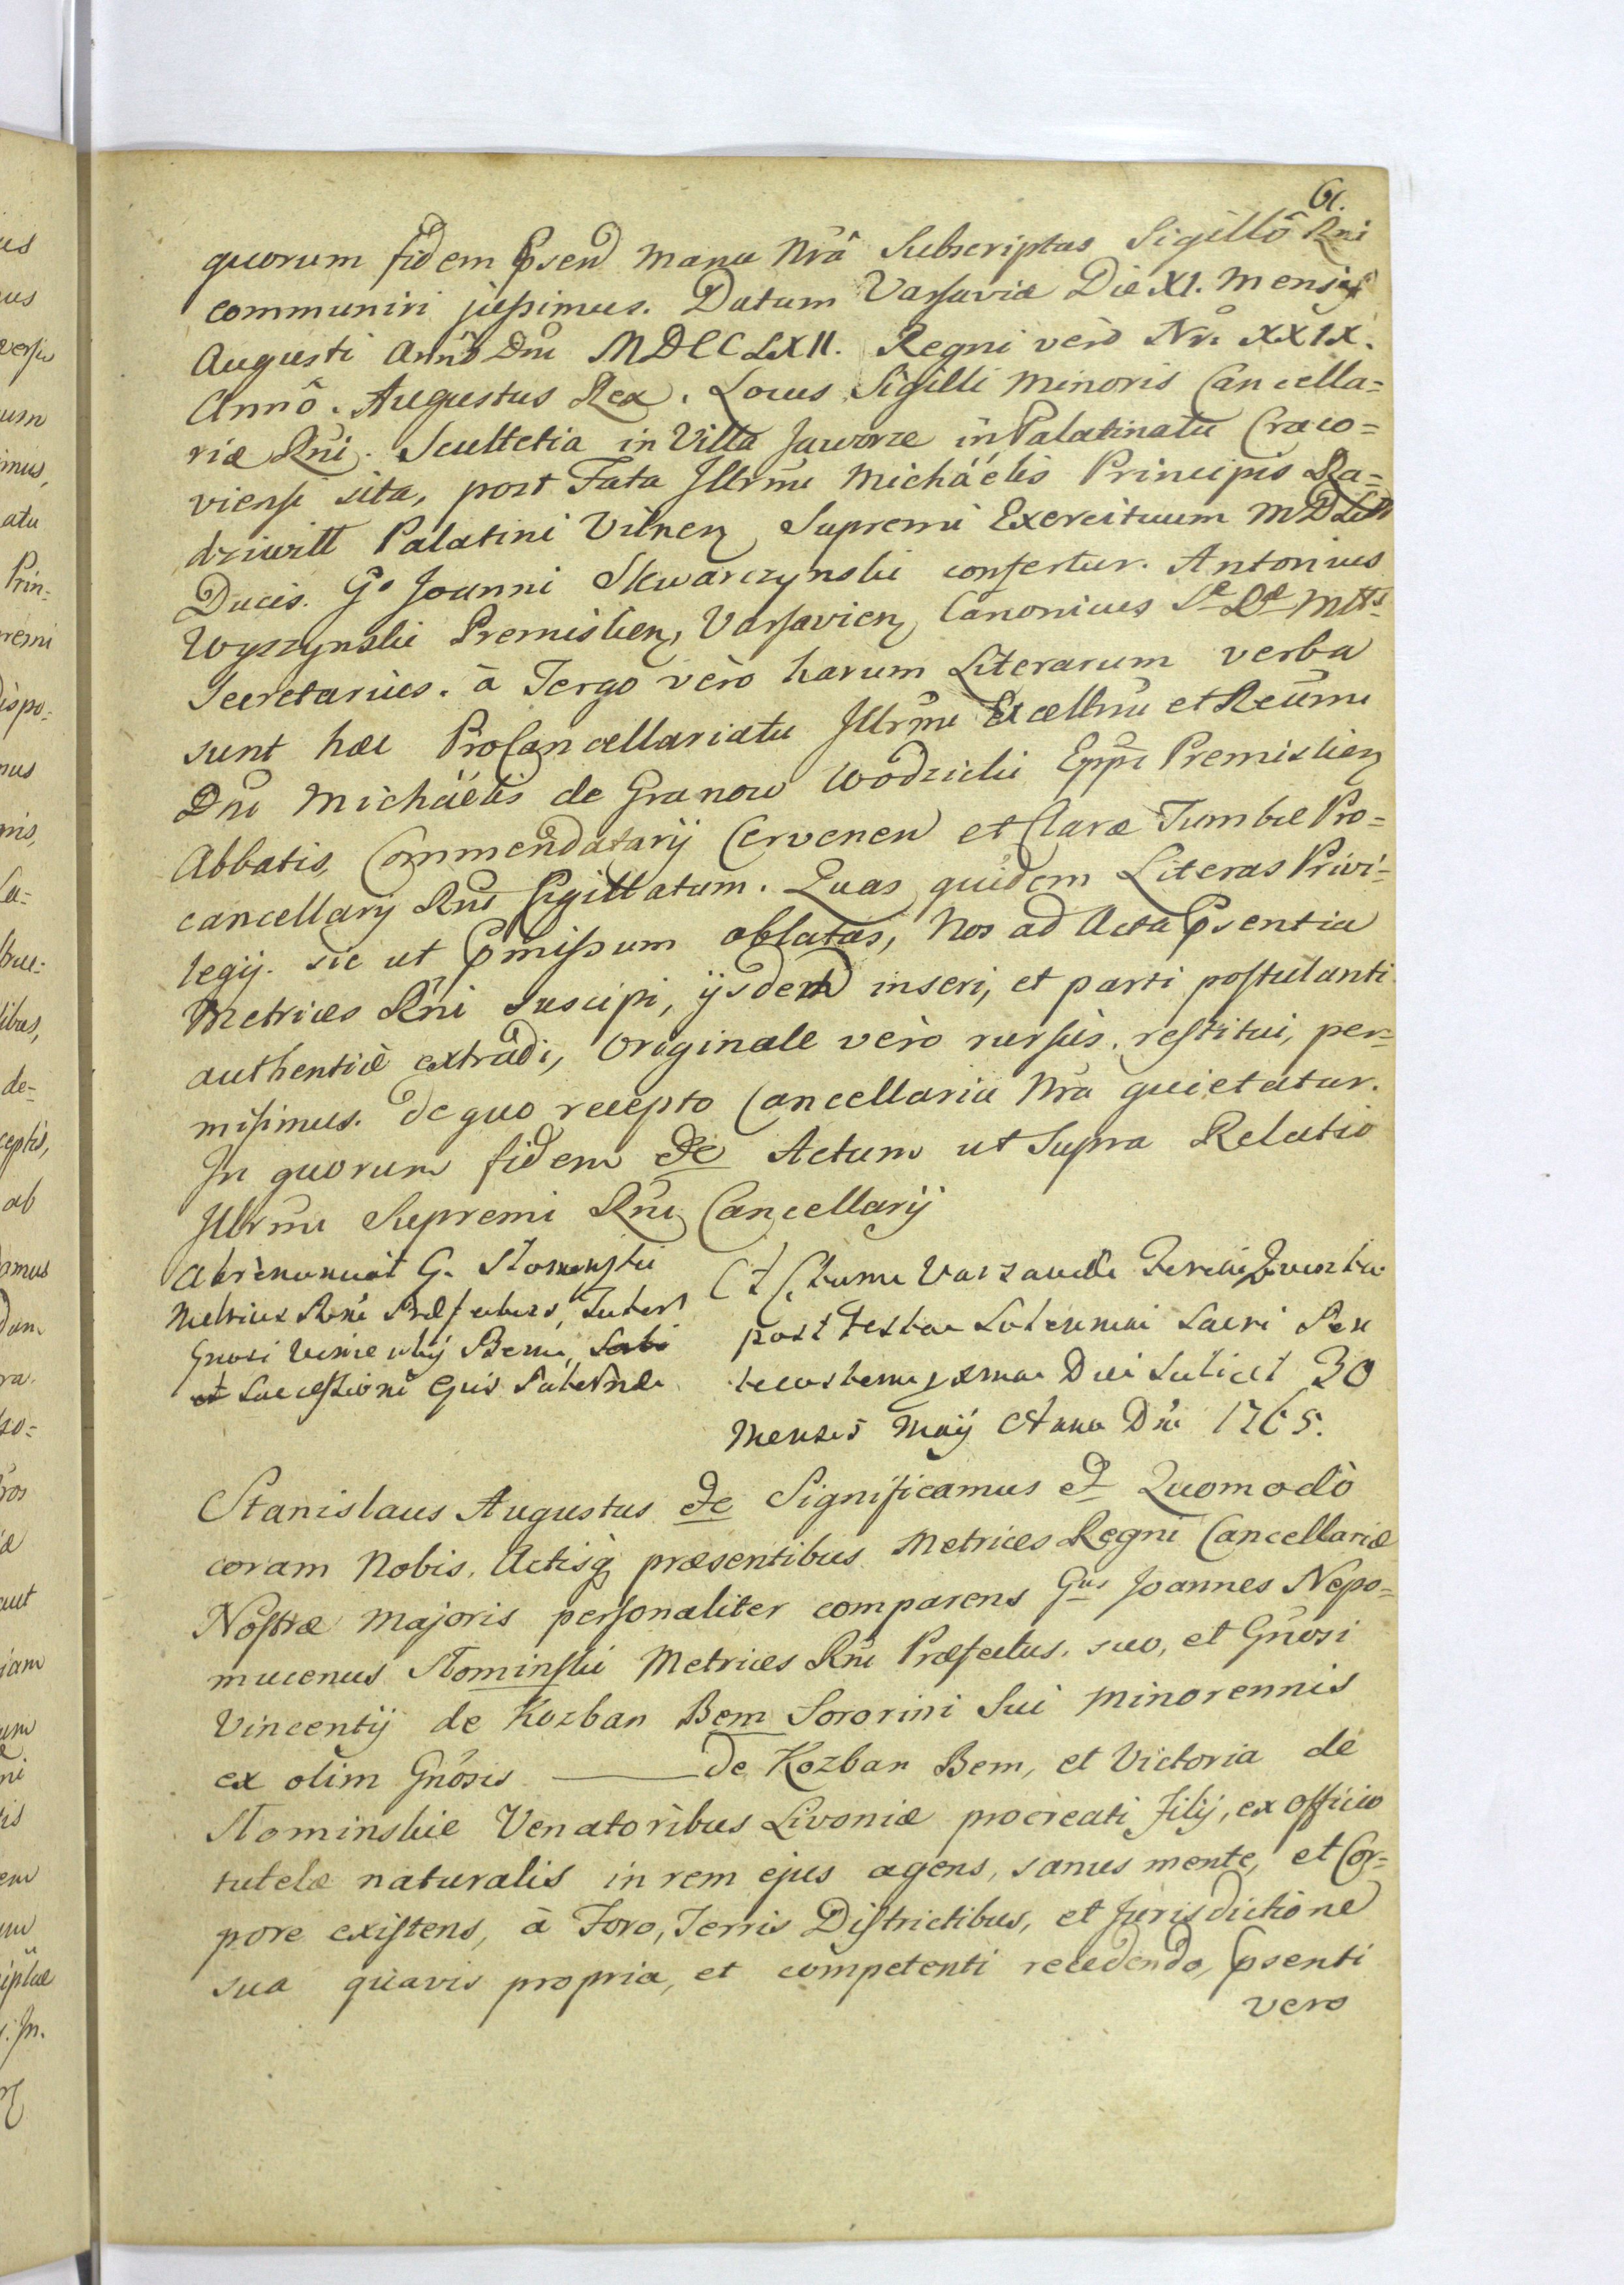 61.
quorum fidem Psend manu Nrâ Subscriptas Sigillô Rni
communiri jussimus. Datum Varsaviæ Die XI. Mensis
Augusti Annô Dni MDCCLXII. Regni verò Nri XXIX.
Annô. Augustus Rex. Locus Sigilli minoris Cancella=
riæ Rni. Scultetia in Villa Jaworze in Palatinatu Craco=
viensi sita, post Fata Illrmi Michäelis Principis Ra=
dziwill Palatini Vilnen, Supremi Exercituum MDLit
Ducis. Go Joanni Skwarczynski confertur. Antonius
Wyszynski Premislien, Varsavien, Canonicus Sæ Ræ Mttis
Secretarius. à Tergo vèro harum Literarum verba
sunt hæc ProCancellariatu Illrmi Excellmi et Reumi
Dni Michäelis de Granow Wodzicki Eppi Premislien
Abbatis, Commendatarij Cervenen et Claræ Tumbæ Pro=
cancellarij Rni Sigillatum. Quas quidem Literas Privi=
legij. sic ut Pmissum oblatas, Nos ad Acta Psentia
Metrices Rni suscipi, ijsdem inseri, et parti postulanti
authenticè extradi, Originale vèro rursùs. restitui, per=
misimus. de quo recepto Cancellaria Nra quietatur.
In quorum fidem &c Actum ut Supra Relatio
Illrmi Supremi Rni Cancellarij
Abrenunciat G. Słominski
Metrices Rni Præfectus,
Gnosi Vincentij Bem,
et Successioni Paternæ
Actum Varsaviæ Feria Quinta
post Festa Solennia Sacri Pen
tecostes proxima Die Scilicet 30
Mensis Maij Anno Dni 1765.
Stanislaus Augustus &c Significamus & Quomodò
coram Nobis, Actisq præsentibus Metrices Regni Cancellariæ
Nostræ Majoris personaliter comparens Gus Joannes Nepo=
mucenus Słominski Metrices Rni Præfectus. suo, et Gnosi
Vincentij de Kozban Bem Sororini Sui minorennis
ex olim Gnosis ——— de Kozban Bem, et Victoria de
Słominskie Venatoribus Livoniæ procreati filij, ex officio
tutelæ naturalis in rem ejus agens, sanus mente, et Cor=
pore existens, à Foro, Terris Districtibus, et Jurisdictione
sua quavis propria, et competenti recedendo, Psenti
vero